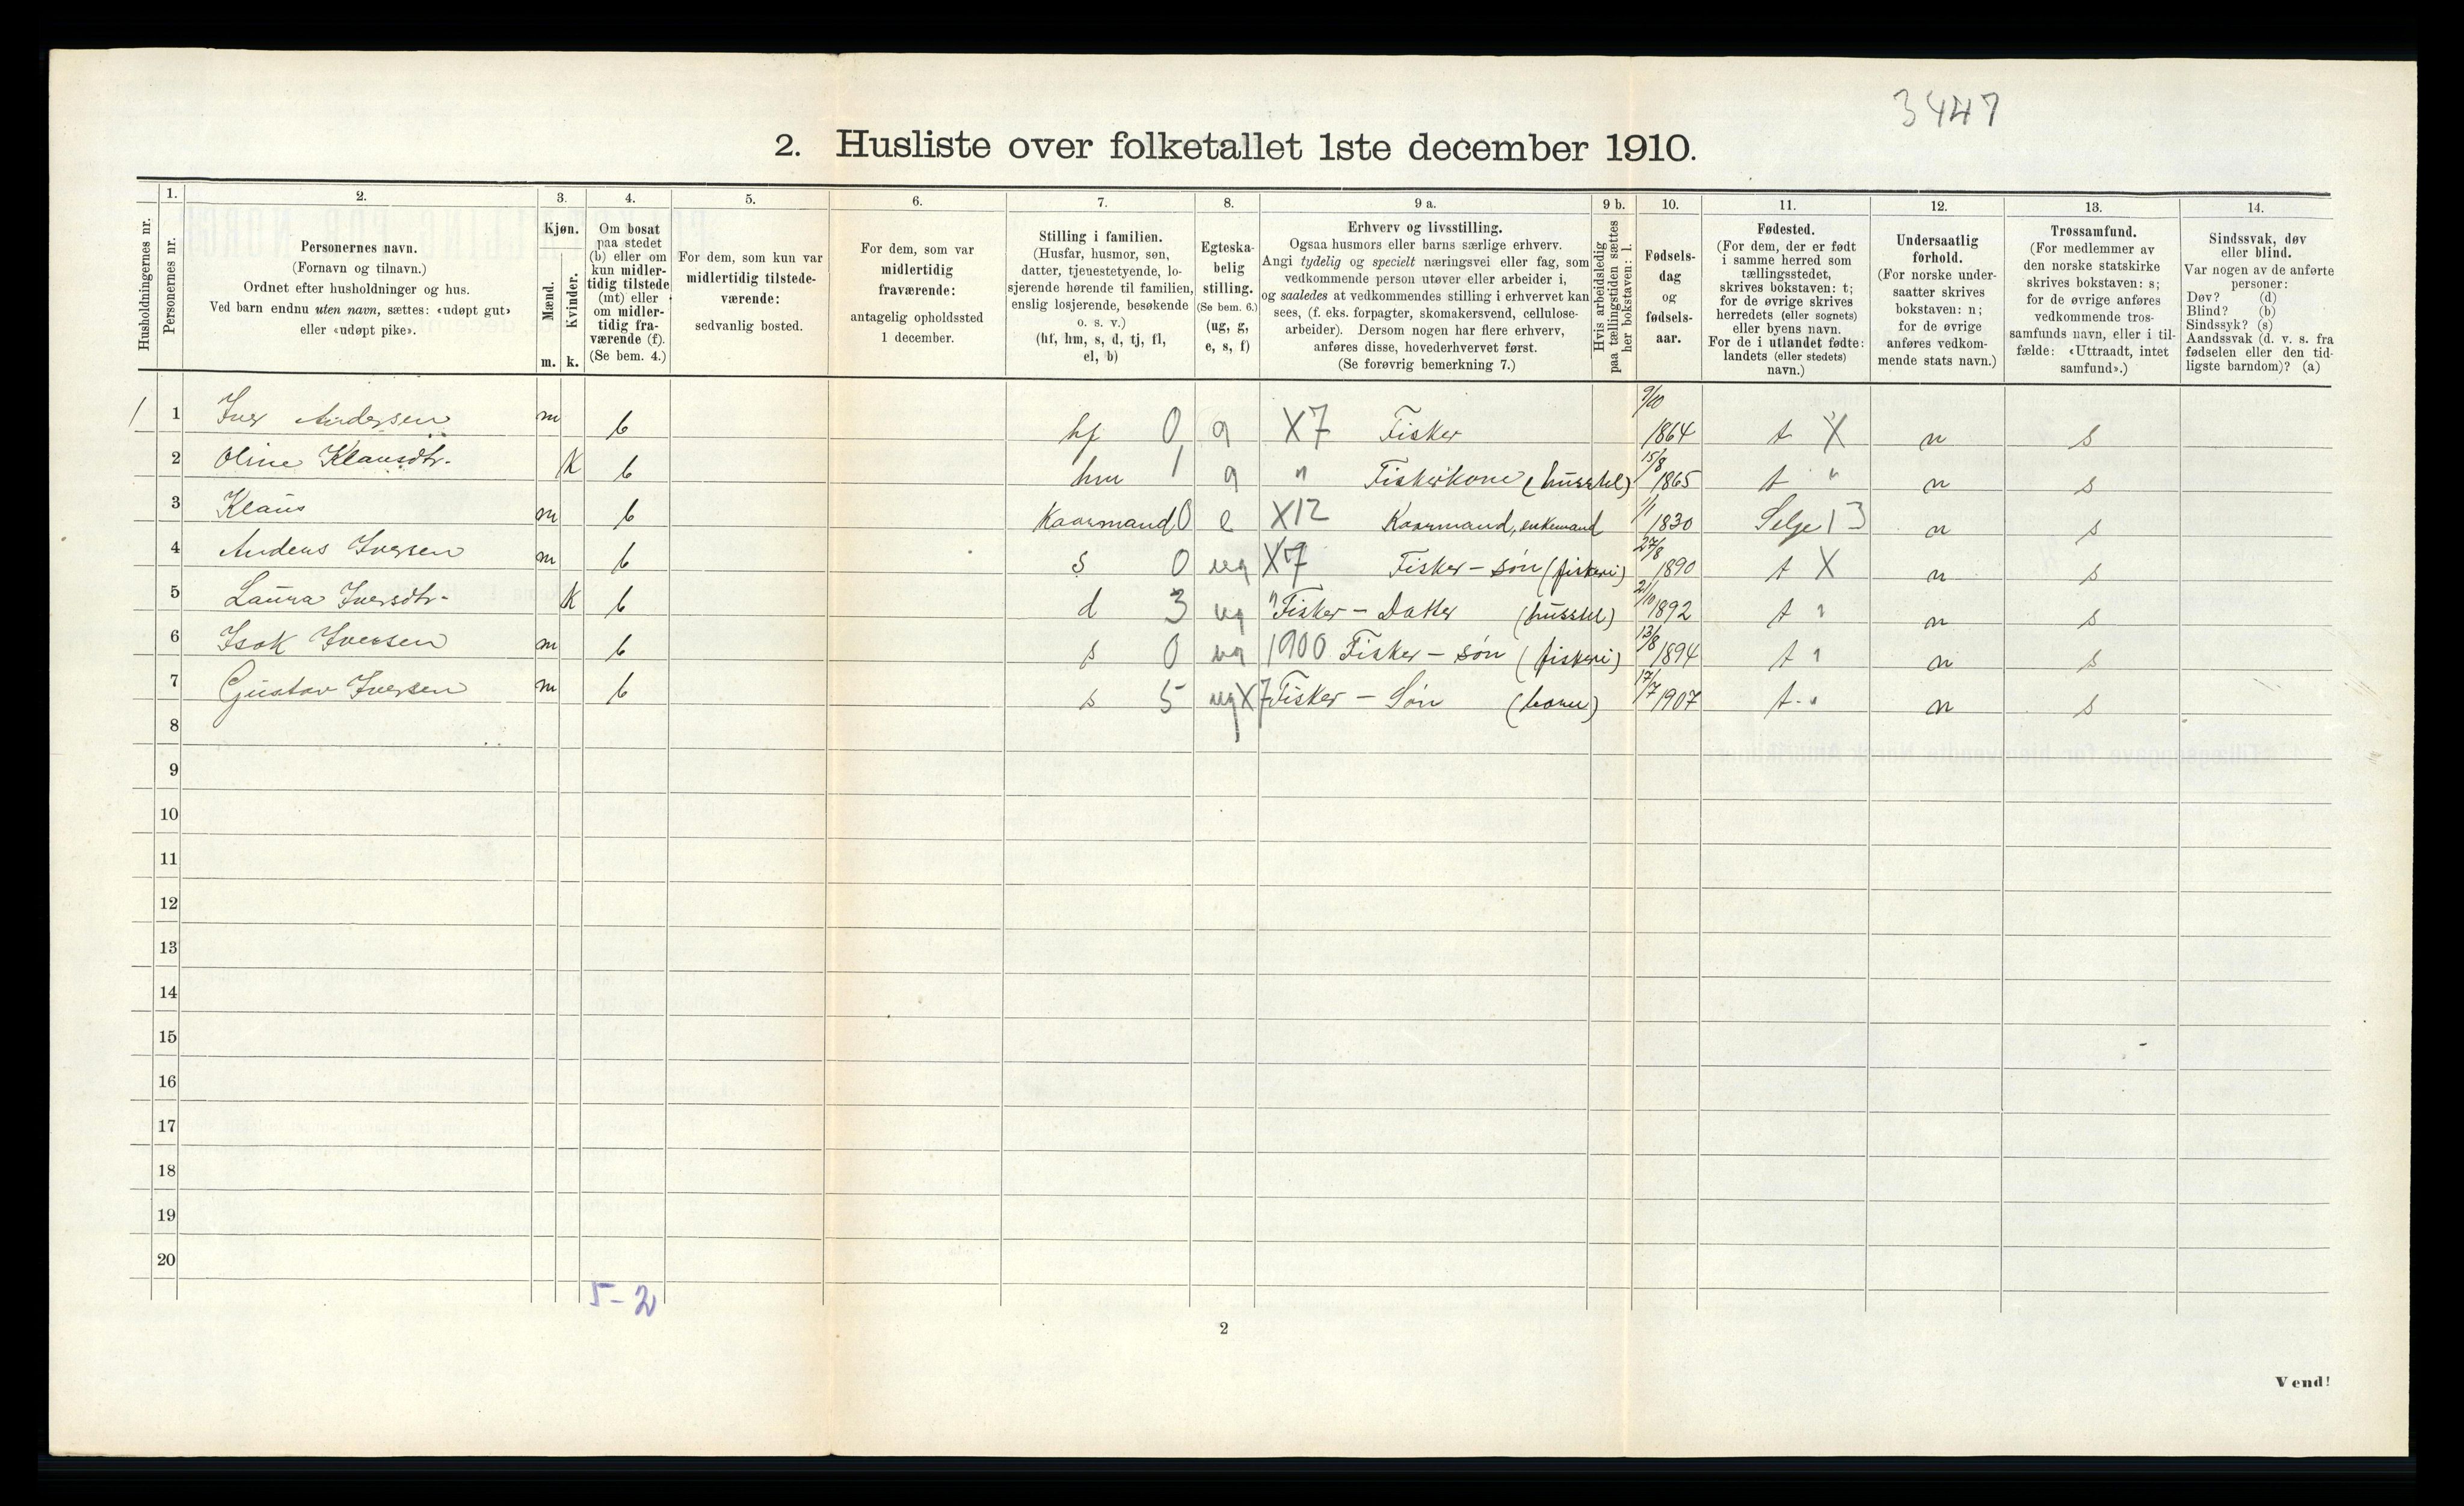 3447
2. Husliste over folketallet 1ste december 1910.
Husholdningernes nr.
1.
Personernes nr.
2.
Personernes navn.
(Fornavn og tilnavn.)
Ordnet efter husholdninger og hus.
Ved barn endnu uten navn, sættes: «udøpt gut»
eller «udøpt pike».
3.
Kjøn.
Mænd.
Kvinder.
m. k.
4.
Om bosat
paa stedet
(b) eller om
kun midler-
tidig tilstede
(mt) eller
om midler-
tidig fra-
værende (f).
(Se bem. 4.)
5.
For dem, som kun var
midlertidig tilstede-
værende:
sedvanlig bosted.
6.
For dem, som var
midlertidig
fraværende:
antagelig opholdssted
1 december.
7.
Stilling i familien.
(Husfar, husmor, søn,
datter, tjenestetyende, lo-
sjerende hørende til familien,
enslig losjerende, besøkende
o. s. v.)
(hf, hm, s, d, tj, fl,
el, b)
8.
Egteska-
belig
stilling.
(Se bem. 6.)
(ug, g,
e, s, f)
9 a.
Erhverv og livsstilling.
Ogsaa husmors eller barns særlige erhverv.
Angi tydelig og specielt næringsvei eller fag, som
vedkommende person utøver eller arbeider i,
og saaledes at vedkommendes stilling i erhvervet kan
sees, (f. eks. forpagter, skomakersvend, cellulose-
arbeider). Dersom nogen har flere erhverv,
anføres disse, hovederhvervet først.
(Se forøvrig bemerkning 7.)
9 b.
Hvis arbeidsledig
paa tællingstiden sættes
her bokstaven: l.
10.
Fødsels-
dag
og
fødsels-
aar.
11.
Fødested.
(For dem, der er født
i samme herred som
tællingsstedet,
skrives bokstaven: t;
for de øvrige skrives
herredets (eller sognets)
eller byens navn.
For de i utlandet fødte:
landets (eller stedets)
navn.)
12.
Undersaatlig
forhold.
(For norske under-
saatter skrives
bokstaven: n;
for de øvrige
anføres vedkom-
mende stats navn.)
13.
Trossamfund.
(For medlemmer av
den norske statskirke
skrives bokstaven: s;
for de øvrige anføres
vedkommende tros-
samfunds navn, eller i til-
fælde: «Uttraadt, intet
samfund».)
14.
Sindssvak, døv
eller blind.
Var nogen av de anførte
personer:
Døv? (d)
Blind? (b)
Sindssyk? (s)
Aandssvak (d. v. s. fra
fødselen eller den tid-
ligste barndom)? (a)
1 1 Iver Andersen m b hf 0 g X7 Fisker 9/10 1864 t X n s
2 Oline Klausdtr. K b hm 1 g " Fiskerkone (husstel) 15/8 1865 t " n s
3 Klaus m b Kaarmand 0 e X12 Kaarmand, enkemand 1/1 1830 Selje 13 n s
4 Anders Iversen m b s 0 ug X7 Fisker - søn (fiskeri) 27/8 1890 t X n s
5 Laura Iversdtr. K b d 3 ug " Fisker - Datter (husstel) 21/10 1892 t " n s
6 Isak Iversen m b s 0 ug 1900 Fisker - søn (fiskeri) 13/8 1894 t " n s
7 Gustav Iversen m b s 5 ug X7 Fisker - Søn (barn) 17/7 1907 t " n s
8
9
10
11
12
13
14
15
16
17
18
19
20
5-2
2
Vend!